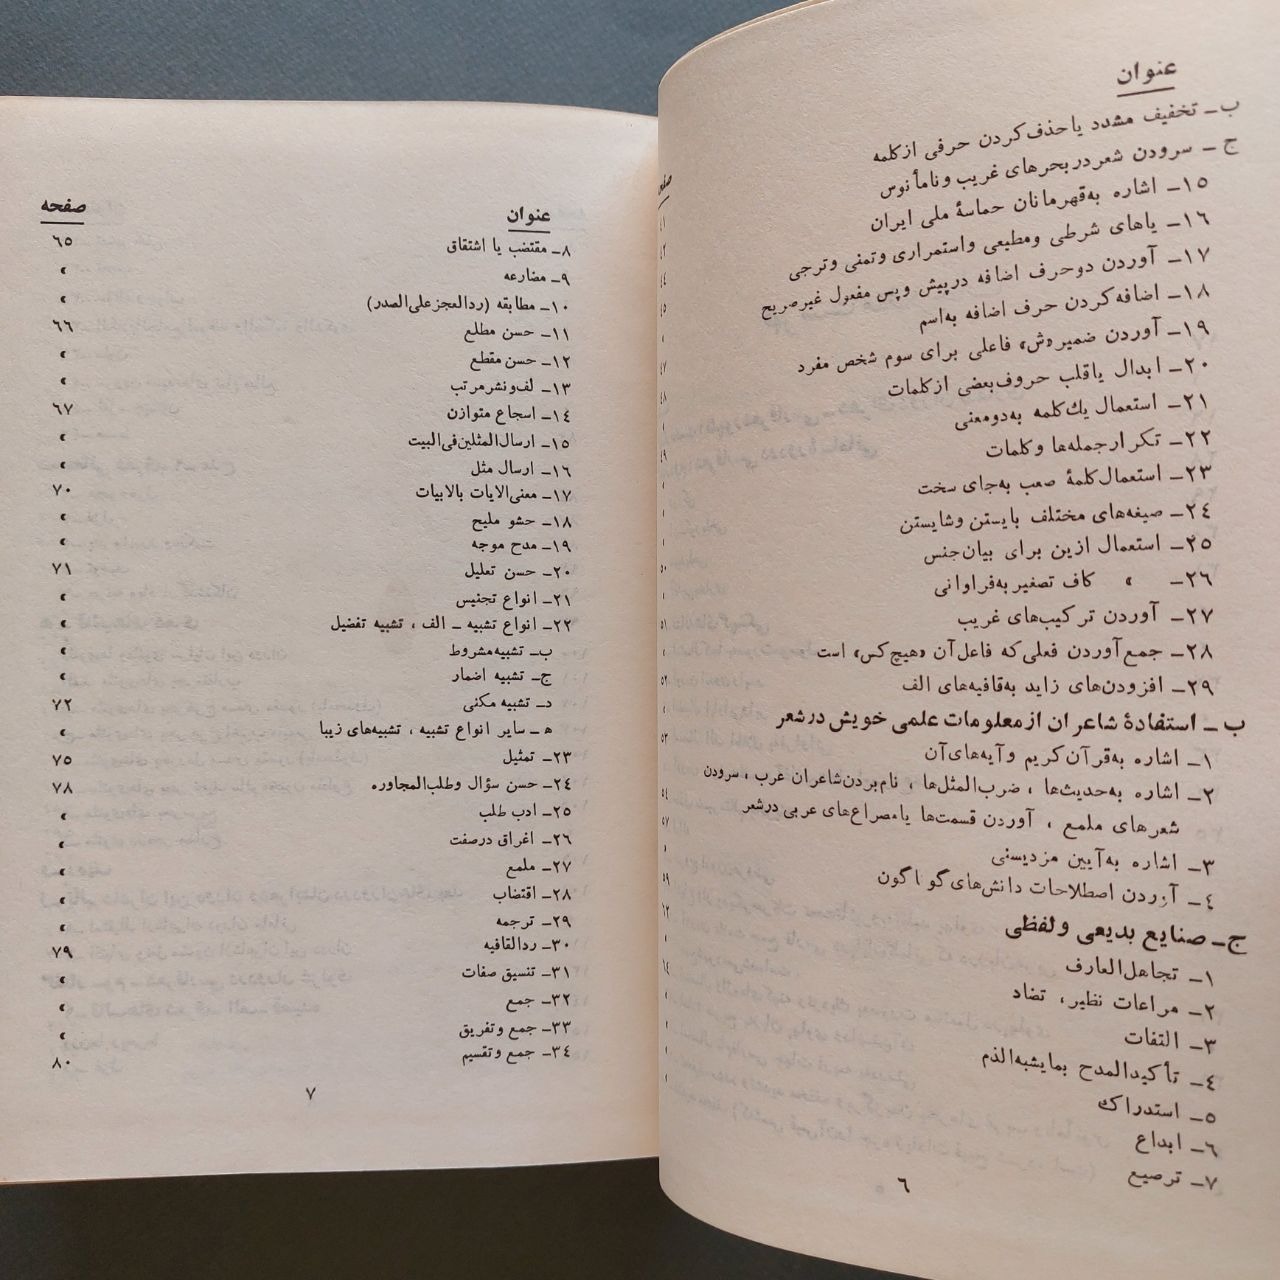 عنوان
ب- تخفیف مشدد یا حذف کردن حرفی از کلمه
ج- سرودن شعر در بحرهای غریب و نامأنوس
۱۵- اشاره به قهرمانان حماسهٔ ملی ایران
۱۶- یاهای شرطی و مطیعی و استمراری و تمنی و ترجی
۱۷- آوردن دو حرف اضافه در پیش و پس مفعول غیر صریح
۱۸- اضافه کردن حرف اضافه به اسم
۱۹- آوردن ضمیر «ش» فاعلی برای سوم شخص مفرد
۲۰- ابدال یا قلب حروف بعضی از کلمات
۲۱- استعمال یك کلمه به دو معنی
۲۲- تکرار جمله‌ها و کلمات
۲۳- استعمال کلمهٔ صعب به جای سخت
۲۴- صیغه‌های مختلف بایستن و شایستن
۲۵- استعمال ازین برای بیان جنس
۲۶- » کاف تصغیر به فراوانی
۲۷- آوردن ترکیب‌های غریب
۲۸- جمع آوردن فعلی که فاعل آن «هیچ کس» است
۲۹- افزودن‌های زاید به قافیه‌های الف
ب- استفادهٔ شاعران از معلومات علمی خویش در شعر
۱- اشاره به قرآن کریم و آیه‌های آن
۲- اشاره به حدیث‌ها ، ضرب‌المثل‌ها ، نام بردن شاعران عرب ، سرودن
شعرهای ملمع ، آوردن قسمت‌ها یا مصراع‌های عربی در شعر
۳- اشاره به آیین مزدیسنی
۴- آوردن اصطلاحات دانش‌های گوناگون
ج- صنایع بدیعی و لفظی
۱- تجاهل‌العارف
۲- مراعات نظیر، تضاد
۳- التفات
۴- تأکیدالمدح بمایشبه‌الذم
۵- استدراك
۶- ابداع
۷- ترصیع
۶
عنوان صفحه
۸- مقتضب یا اشتقاق ۶۵
۹- مضارعه »
۱۰- مطابقه (ردالعجز علی‌الصدر) »
۱۱- حسن مطلع ۶۶
۱۲- حسن مقطع »
۱۳- لف و نشر مرتب »
۱۴- اسجاع متوازن ۶۷
۱۵- ارسال‌المثلین فی‌البیت »
۱۶- ارسال مثل »
۱۷- معنی‌الایات بالابیات ۷۰
۱۸- حشو ملیح »
۱۹- مدح موجه »
۲۰- حسن تعلیل ۷۱
۲۱- انواع تجنیس »
۲۲- انواع تشبیه - الف ، تشبیه تفضیل »
ب- تشبیه مشروط »
ج- تشبیه اضمار »
د- تشبیه مکنی ۷۲
ه- سایر انواع تشبیه ، تشبیه‌های زیبا »
۲۳- تمثیل ۷۵
۲۴- حسن سؤال و طلب‌المجاوره ۷۸
۲۵- ادب طلب »
۲۶- اغراق در صفت »
۲۷- ملمع »
۲۸- اقتضاب »
۲۹- ترجمه »
۳۰- ردالقافیه ۷۹
۳۱- تنسیق صفات »
۳۲- جمع »
۳۳- جمع و تفریق »
۳۴- جمع و تقسیم ۸۰
۷